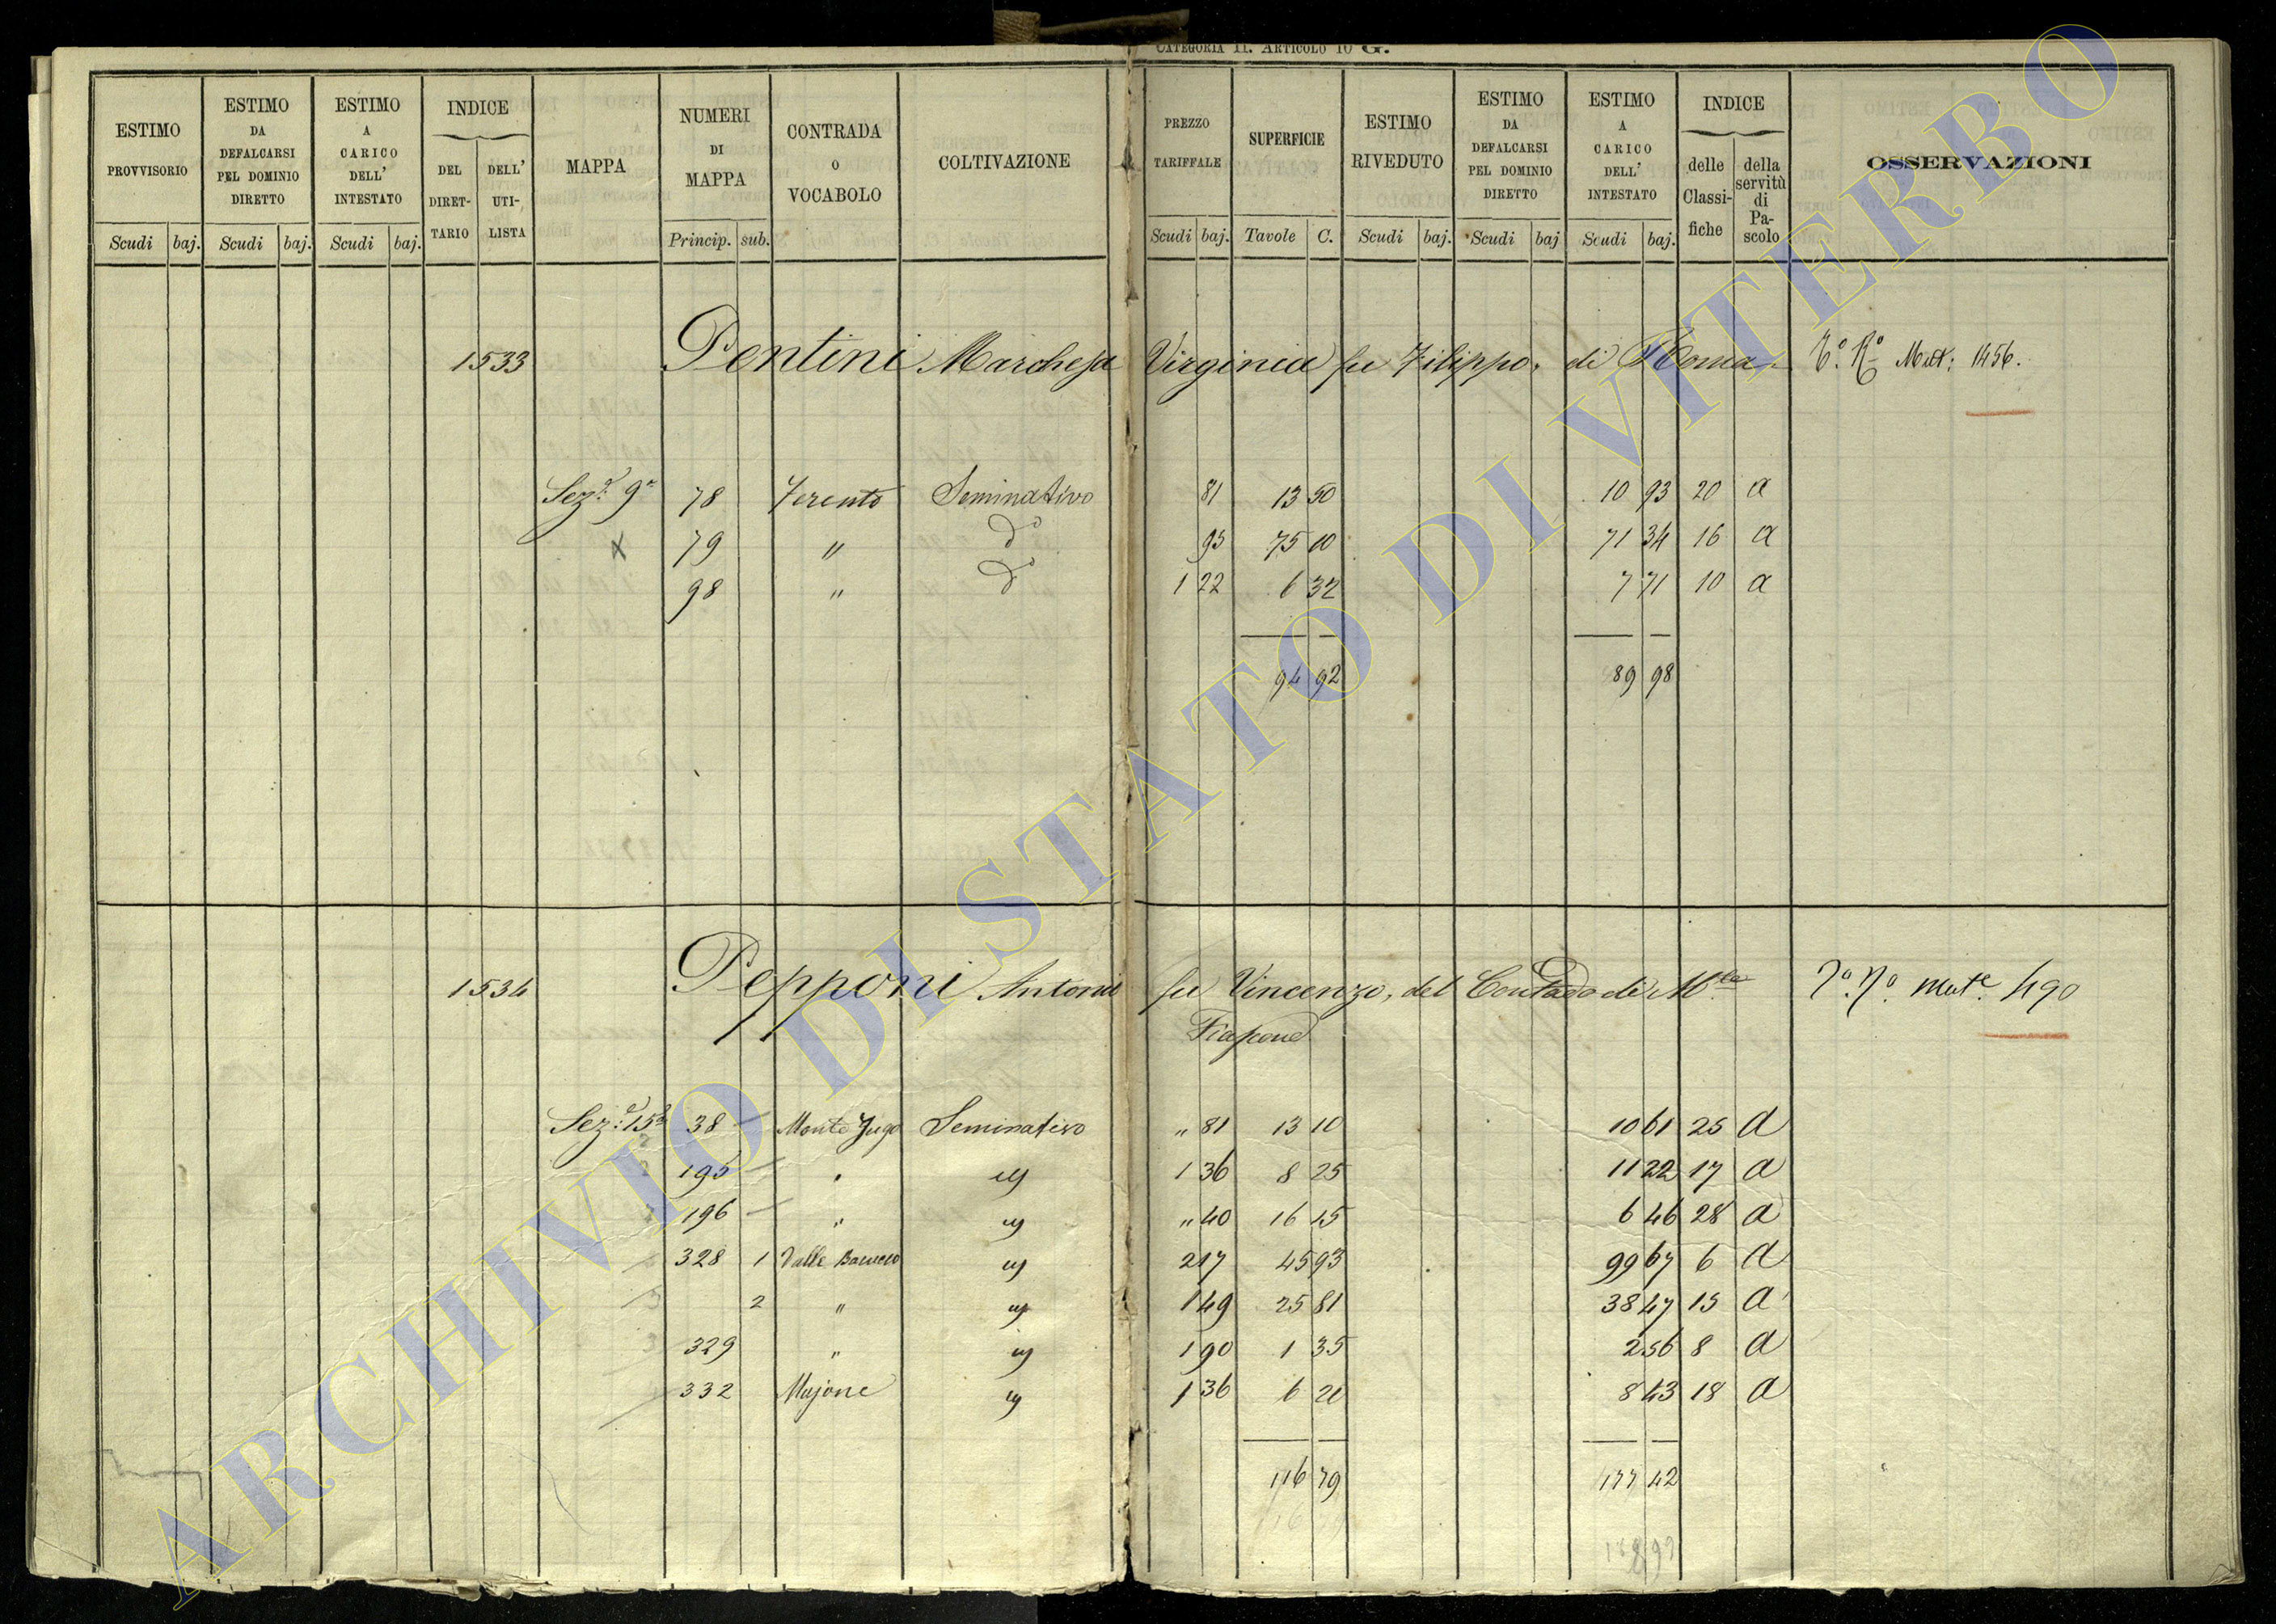 CATEGORIA II. ARTICOLO 10 G.
ESTIMO PROVVISORIO
ESTIMO DA DEFALCARSI PEL DOMINIO DIRETTO
ESTIMO A CARICO DELL' INTESTATO
INDICE
DEL DIRETTARIO
DELL' UTILISTA
MAPPA
NUMERI DI MAPPA
CONTRADA O VOCABOLO
COLTIVAZIONE
PREZZO TARIFFALE
SUPERFICIE
ESTIMO RIVEDUTO
ESTIMO DA DEFALCARSI PEL DOMINIO DIRETTO
ESTIMO A CARICO DELL' INTESTATO
INDICE
delle Classifiche
della servitù di Pascolo
OSSERVAZIONI
Scudi baj. Scudi baj. Scudi baj. Princip. sub. Scudi baj. Tavole C. Scudi baj. Scudi baj Scudi baj.
1533 Pentini Marchesa Virginia fu Filippo, di Roma. Tº. Rº Mat: 1456.
Sezᵉ. 9ª 78 Ferento Seminativo 81 13 50 10 93 20 a
79 " dº 95 75 10 71 34 16 a
98 " dº 1 22 6 32 7 71 10 a
94 92 89 98
1534 Pepponi Antonio fu Vincenzo, del Contado di Mᵗᵉ
Fiascone
Matᵉ. 490
Sezᵉ: 15ª 38 Monte Jugo Seminativo " 81 13 10 10 61 25 a
195 " 1 36 8 25 11 22 17 a
196 " " 40 16 15 6 46 28 a
328 1 Valle Bacucco 2 17 45 93 99 67 6 a
2 " 1 49 25 81 38 47 15 a
329 " 1 90 1 35 2 56 8 a
332 Majone 1 36 6 20 8 43 18 a
116 79 177 42
ARCHIVIO DI STATO DI VITERBO